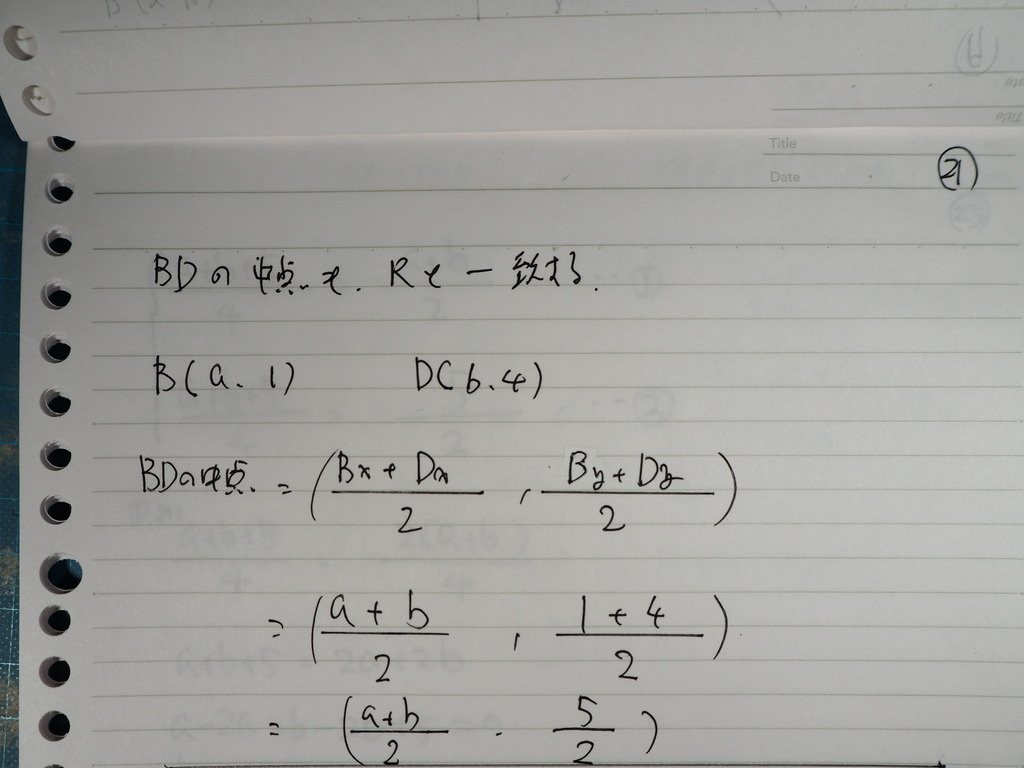 Title
Date
㉑
BDの中点も、Rと一致する.
B(a、1) D(b、4)
BDの中点、= ( (Bx + Dx)/2 , (By + Dy)/2 )
= ( (a + b)/2 , (1 + 4)/2 )
= ( (a+b)/2 、 5/2 )